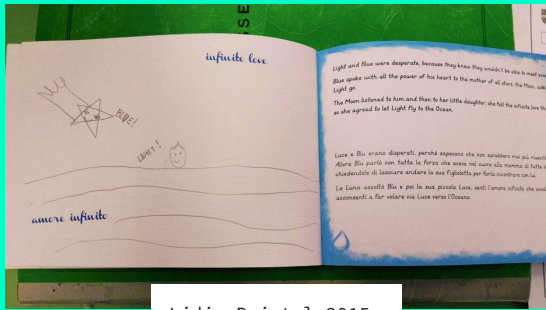 infinite love
BLUE!
LIGHT!
amore infinito
Light and Blue were desperate, because they knew they wouldn't be able to meet
Blue spoke with all the power of his heart to the mother of all stars, the Moon,
Light go.
The Moon listened to him and then to her little daughter, she felt the infinite love
so she agreed to let Light fly to the Ocean.
Luce e Blu erano disperati, perché sapevano che non sarebbero mai più riusciti
Allora Blu parlò con tutta la forza che aveva nel cuore alla mamma di tutte le
chiedendole di lasciare andare la sua figlioletta per farla incontrare con lui.
La Luna ascoltò Blu e poi la sua piccola Luce, sentì l'amore infinito che
acconsentì a far volare via Luce verso l'Oceano.